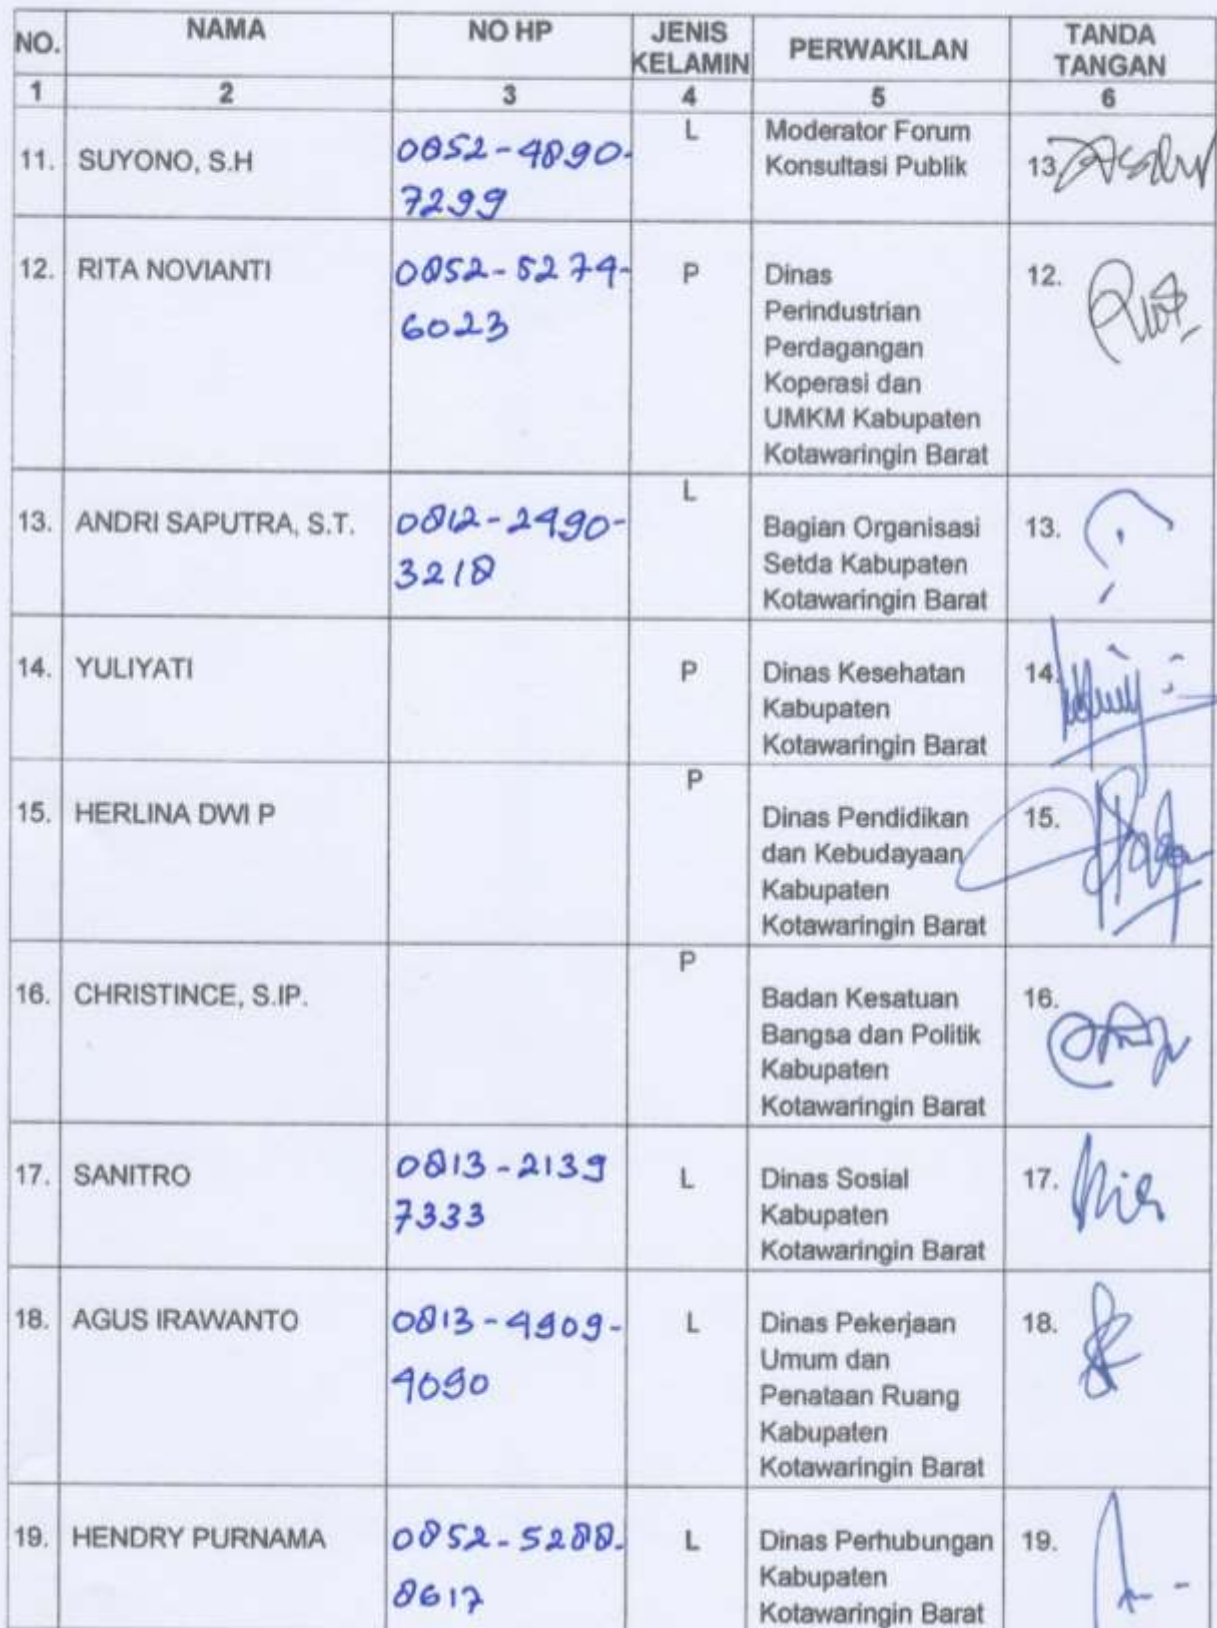 NO. NAMA NO HP JENIS KELAMIN PERWAKILAN TANDA TANGAN
1 2 3 4 5 6
11. SUYONO, S.H 0852-4890- L Moderator Forum 13
7299 Konsultasi Publik
12. RITA NOVIANTI 0852-5274- P Dinas 12.
6023 Perindustrian
Perdagangan
Koperasi dan
UMKM Kabupaten
Kotawaringin Barat
13. ANDRI SAPUTRA, S.T. 0812-2490- L Bagian Organisasi 13.
3218 Setda Kabupaten
Kotawaringin Barat
14. YULIYATI P Dinas Kesehatan 14.
Kabupaten
Kotawaringin Barat
15. HERLINA DWI P P Dinas Pendidikan 15.
dan Kebudayaan
Kabupaten
Kotawaringin Barat
16. CHRISTINCE, S.IP. P Badan Kesatuan 16.
Bangsa dan Politik
Kabupaten
Kotawaringin Barat
17. SANITRO 0813-2139 L Dinas Sosial 17.
7333 Kabupaten
Kotawaringin Barat
18. AGUS IRAWANTO 0813-4909- L Dinas Pekerjaan 18.
9090 Umum dan
Penataan Ruang
Kabupaten
Kotawaringin Barat
19. HENDRY PURNAMA 0852-5288- L Dinas Perhubungan 19.
8617 Kabupaten
Kotawaringin Barat